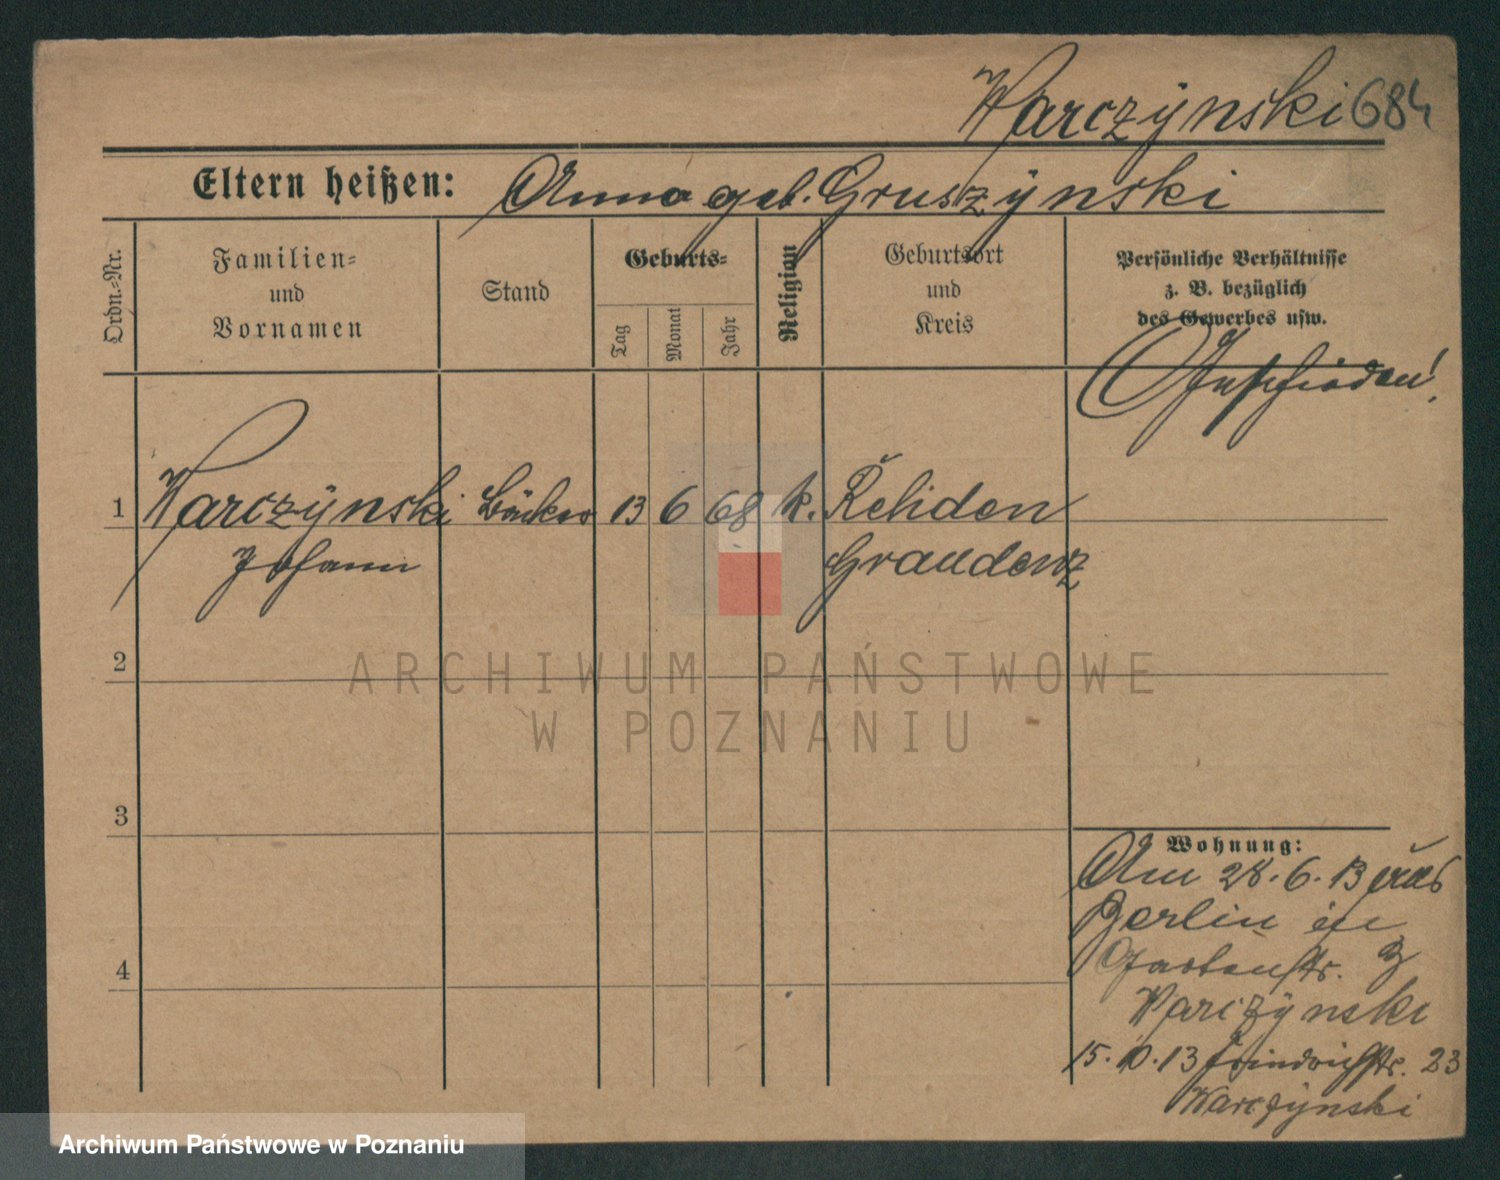 Warczÿnski 684
Eltern heißen: Anna geb. Gruszÿnski
Ordn.-Nr.
Familien-
und
Vornamen
Stand
Geburts-
Tag
Monat
Jahr
Religion
Geburtsort
und
Kreis
Persönliche Verhältnisse
z. B. bezüglich
des Gewerbes usw.
1 Warczÿnski Bäcker 13 6 68 k. Rehden
Johann Graudenz
2
3
4
Wohnung:
Am 28.6.13 aus
Berlin in
Gartenstr. 3
Warczÿnski
15.10.13 Friedrichstr. 23
Warczÿnski
ARCHIWUM PAŃSTWOWE
W POZNANIU
Archiwum Państwowe w Poznaniu